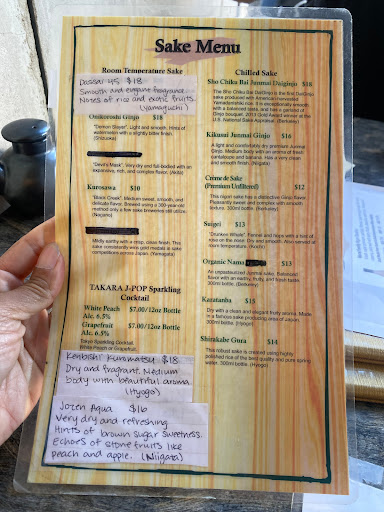 Sake Menu
Room Temperature Sake
Dassai 45 $18
Smooth and elegant fragrance
Notes of rice and exotic fruits
(Yamaguchi)
Onikoroshi Ginjo $18
"Demon Slayer". Light and smooth. Hints of
watermelon with a slightly bitter finish.
(Shizuoka)
"Devil's Mask". Very dry and full bodied with an
expansive, rich, and complex flavor. (Akita)
Kurosawa $10
"Black Creek". Medium sweet, smooth, and
delicate flavor. Brewed using a 300-year-old
method only a few sake breweries still utilize.
(Nagano)
Mildly earthy with a crisp, clean finish. This
sake consistently wins gold medals in sake
competitions across Japan. (Yamagata)
TAKARA J-POP Sparkling
Cocktail
White Peach $7.00/12oz Bottle
Alc. 6.5%
Grapefruit $7.00/12oz Bottle
Alc. 6.5%
Tokyo Sparkling Cocktail
White Peach or Grapefruit
Kenbishi Kuromatsu $18
Dry and fragrant. Medium
body with beautiful aroma.
(Hyogo)
Jozen Aqua $16
Very dry and refreshing
Hints of brown sugar sweetness.
Echoes of stone fruits like
peach and apple. (Niigata)
Chilled Sake
Sho Chiku Bai Junmai Daiginjo $18
The Sho Chiku Bai DaiGinjo is the first DaiGinjo
sake produced with American harvested
Yamadanishiki rice. It is exceptionally smooth
with a balanced taste, and has a garland of
Ginjo bouquet. 2013 Gold Award winner at the
U.S. National Sake Appraisal. (Berkeley)
Kikusui Junmai Ginjo $16
A light and comfortably dry premium Junmai
Ginjo. Medium body with an aroma of fresh
cantaloupe and banana. Has a very clean
and smooth finish. (Niigata)
Crème de Sake
(Premium Unfiltered) $12
This nigori sake has a distinctive Ginjo flavor.
Pleasantly sweet and complex with smooth
texture. 300ml bottle. (Berkeley)
Suigei $13
"Drunken Whale". Fennel and hops with a hint of
rose on the nose. Dry and smooth. Also served at
room temperature. (Kochi)
Organic Nama $13
An unpasteurized Junmai sake. Balanced
flavor with an earthy, fruity, and fresh taste.
300ml bottle. (Berkeley)
Karatanba $15
Dry with a clean and elegant fruity aroma. Made
in a famous sake producing area of Japan.
300ml bottle. (Hyogo)
Shirakabe Gura $14
This robust sake is created using highly
polished rice of the best quality and pure spring
water. 300ml bottle. (Hyogo)